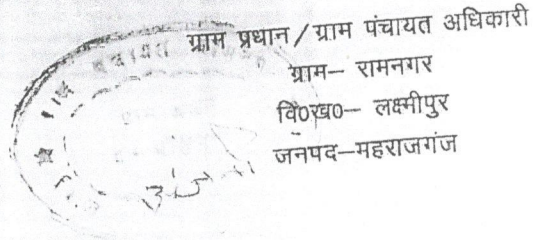 ग्राम प्रधान / ग्राम पंचायत अधिकारी
ग्राम– रामनगर
वि०ख०– लक्ष्मीपुर
जनपद–महराजगंज